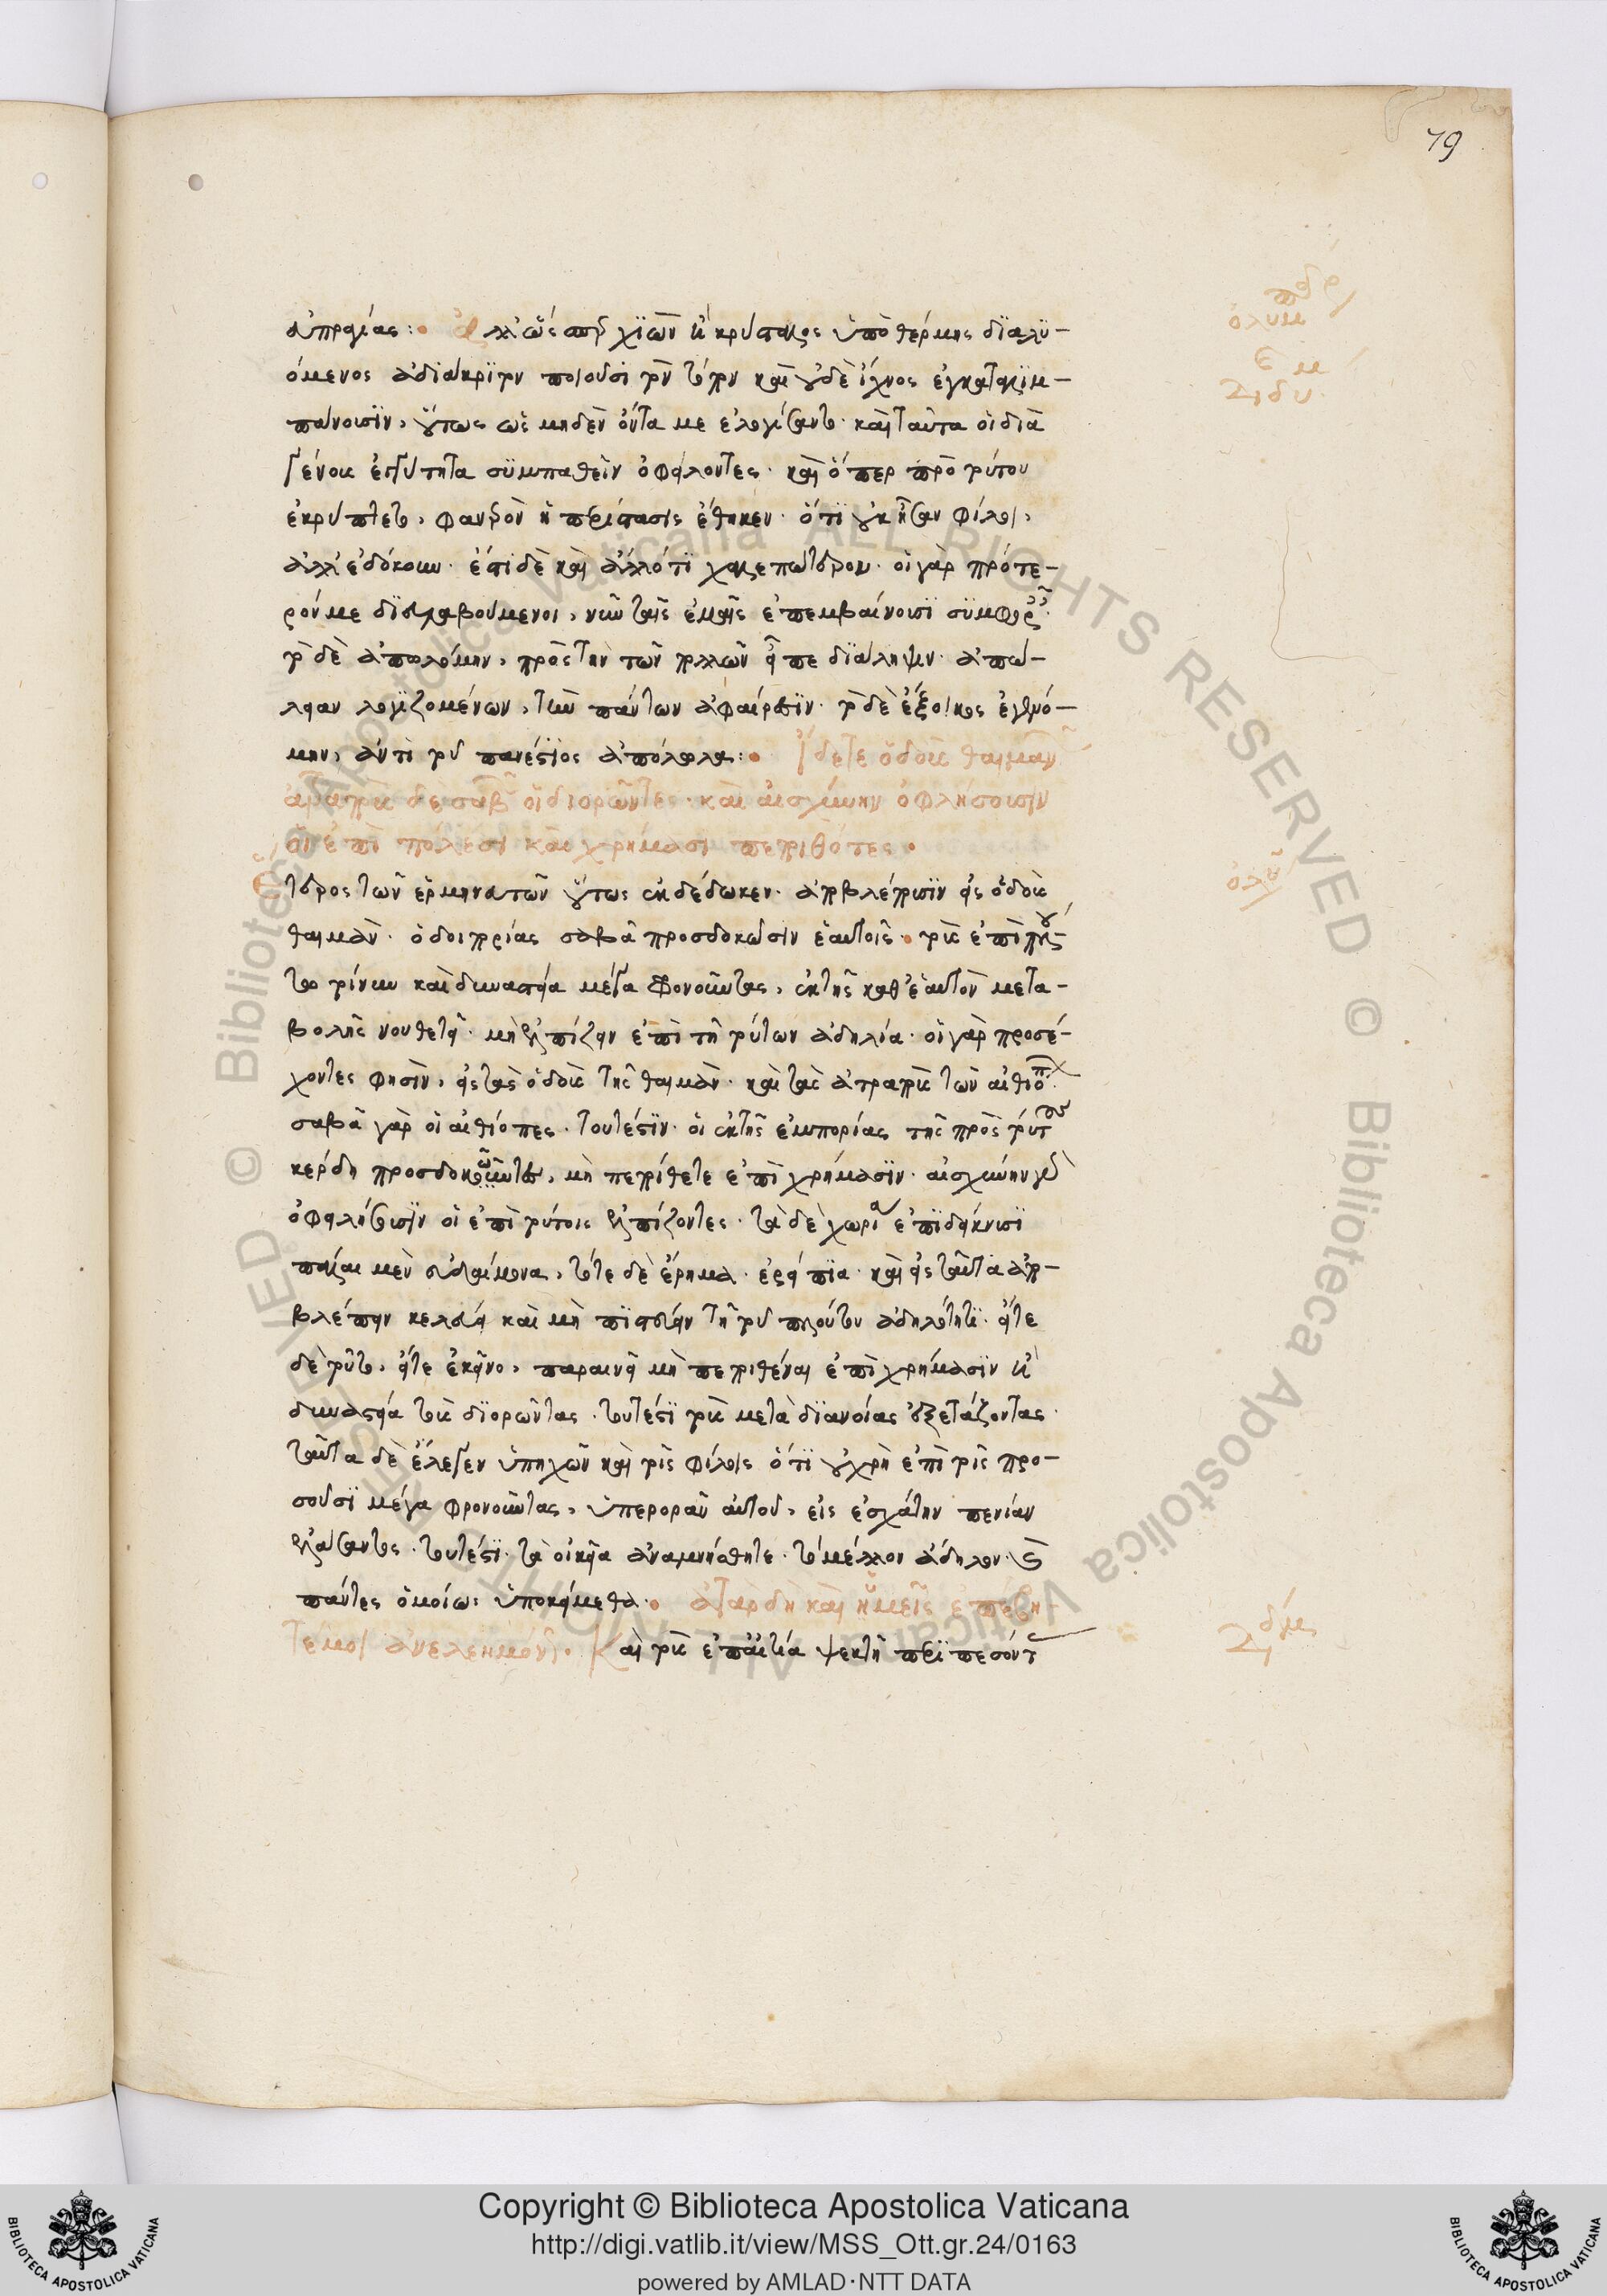 79
εὐπραγίας: ἀλλ' ὥσπερ χιὼν ἢ κρύσταλλος ὑπὸ θέρμης διαλυ-
όμενος ἀδιάκριτον ποιοῦσι τὸν τόπον καὶ οὐδὲ ἴχνος ἐγκαταλιμ-
πάνουσιν, οὕτως ὡς μηδὲν ὄντα με ἐλογίσαντο. καὶ ταῦτα οἱ διὰ
γένους ἐγγύτητα συμπαθεῖν ὀφείλοντες. καὶ ὅπερ πρὸ τούτου
ἐκρύπτετο, φανερὸν ἡ περίστασις ἔθηκεν. ὅτι οὐκ ἦσαν φίλοι,
ἀλλ' ἐδόκουν. ἔστι δὲ καὶ ἄλλό τι χαλεπώτερον. οἱ γὰρ πρότε-
ρόν με διευλαβούμενοι, νῦν ταῖς ἐμαῖς ἐπεμβαίνουσι συμφορ
τὸ δὲ ἀπωλόμην, πρὸς τὴν τῶν πολλῶν εἶπε διάληψιν. ἀπώ-
λειαν λογιζομένων, τὴν πάντων ἀφαίρεσιν. τὸ δὲ ἔξοικος ἐγενό-
μην, ἀντὶ τοῦ πανέστιος ἀπόλωλα: ἴδετε ὁδοὺς θαιμὰν
ἀτραποὺς δὲ σαβ οἱ διορῶντες. καὶ αἰσχύνην ὀφλήσουσιν
οἱ ἐπὶ πόλεσι καὶ χρήμασι πεποιθότες.
Ἕτερος τῶν ἑρμηνευτῶν οὕτως ἐκδέδωκεν. ἀποβλέπουσιν εἰς ὁδοὺς
θαιμάν. ὁδοιπορίας σαβὰ προσδοκῶσιν ἑαυτοῖς. τοὺς ἐπὶ πλού
τῳ τοίνυν καὶ δυναστεία μέγα φρονοῦντας, ἐκ τῆς καθ' ἑαυτὸν μετα-
βολῆς νουθετεῖ. μὴ ἐλπίζειν ἐπὶ τῇ τούτων ἀδηλία. οἱ γὰρ προσέ-
χοντες φησὶν, εἰς τὰς ὁδοὺς τῆς θαιμάν. καὶ τὰς ἀτραποὺς τῶν αἰθιόπ
σαβὰ γὰρ οἱ αἰθίοπες. τουτέστιν. οἱ ἐκ τῆς ἐμπορίας τῆς πρὸς τούτ
κέρδη προσδοκῶντες, μὴ πεποίθετε ἐπὶ χρήμασιν. αἰσχύνην γὰρ
ὀφειλήσουσιν οἱ ἐπὶ τούτοις ἐλπίζοντες. τὰ δὲ χωρία ἐπιδείκνυσι
πάλαι μὲν εὐδαίμονα, τότε δὲ ἔρημα. ἐρείπια. καὶ εἰς ταῦτα ἀπο-
βλέπειν κελεύει καὶ μὴ πιστεύειν τῇ τοῦ πλούτου ἀδηλότητι. εἴτε
δὲ τοῦτο, εἴτε ἐκεῖνο, παραινεῖ μὴ πεποιθέναι ἐπὶ χρήμασιν ἢ
δυναστεία τοὺς διορῶντας. τουτέστι τοὺς μετὰ διανοίας ἐξετάζοντας.
ταῦτα δὲ ἔλεγεν ὑπηχῶν καὶ τοῖς φίλοις ὅτι οὐ χρὴ ἐπὶ τοῖς προ-
σοῦσι μέγα φρονοῦντας, ὑπερορᾶν αὐτοῦ, εἰς ἐσχάτην πενίαν
ἐλάσαντος. τουτέστι. τὰ οἰκεῖα ἀναμνήσθητε. τὸ μέλλον ἄδηλον.
πάντες ὁμοίως ὑποκείμεθα. ἀτὰρ δὴ καὶ ὑμεῖς ἐπέβη-
τέ μοι ἀνελεημόν. Καὶ τοὺς ἐπ' αἰτία ψεκτῇ περιπεσόντ
Copyright © Biblioteca Apostolica Vaticana
http://digi.vatlib.it/view/MSS_Ott.gr.24/0163
powered by AMLAD·NTT DATA
BIBLIOTECA APOSTOLICA VATICANA
BIBLIOTECA APOSTOLICA VATICANA